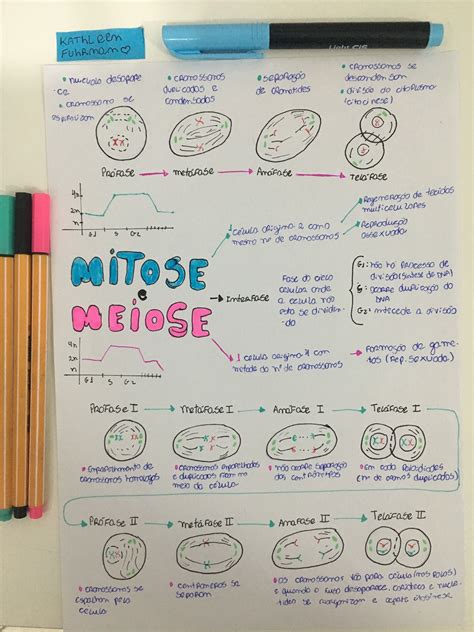 KATHLEEN
FUHRMANN
Light
• nucléolo desaparece
• cromossomo se
espiralizam
• cromossomos
duplicados e
condensados
• separação
de cromátides
• cromossomos se
descondensam
• divisão do citoplasma
(citocinese)
Prófase
metáfase
Anáfase
Telófase
4n
2n
G1 S G2
MITOSE
e
MEIOSE
1 célula origina 2 com o
mesmo nº de cromossomos
Regeneração de tecidos
multicelulares
Reprodução
assexuada
Interfase
Fase do ciclo
celular onde
a célula não
está se dividindo
G1: não
processo de
divisão (síntese de
S: ocorre duplicação do
DNA
G2: antecede a divisão
4n
2n
n
G1 S G2
1 célula origina 4 com
metade do nº de cromossomos
Formação de gametas
(Rep. sexuada)
Prófase I
Metáfase I
Anáfase I
Telófase I
• Emparelhamento de
cromossomos homólogos
• cromossomos emparelhados
e duplicados ficam no
meio da célula
• não ocorre separação
dos centrômeros
• em cada
(nº de
duplicados)
Prófase II
Metáfase II
Anáfase II
Telófase II
• cromossomos se
espalham pela
célula
• centrômeros se
separam
• os cromossomos vão para
(nos polos)
e quando o fuso desaparece,
se reorganizam e